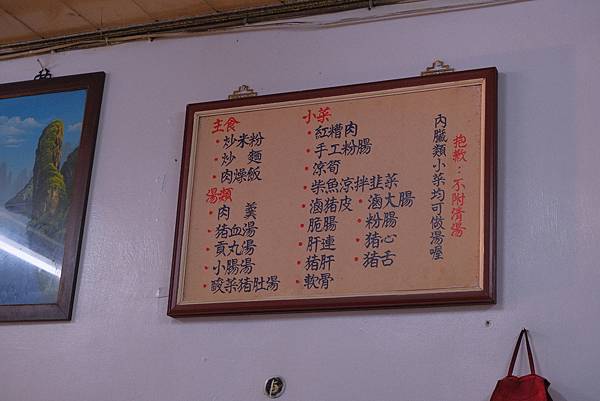 主食
•炒米粉
•炒 麵
•肉燥飯
湯類
•肉 羹
•豬血湯
•貢丸湯
•小腸湯
•酸菜豬肚湯
小菜
•紅糟肉
•手工粉腸
•涼筍
•柴魚涼拌韭菜
•滷豬皮 •滷大腸
•脆腸 •粉腸
•肝連 •豬心
•豬肝 •豬舌
•軟骨
抱歉：不附清湯
內臟類小菜均可做湯喔